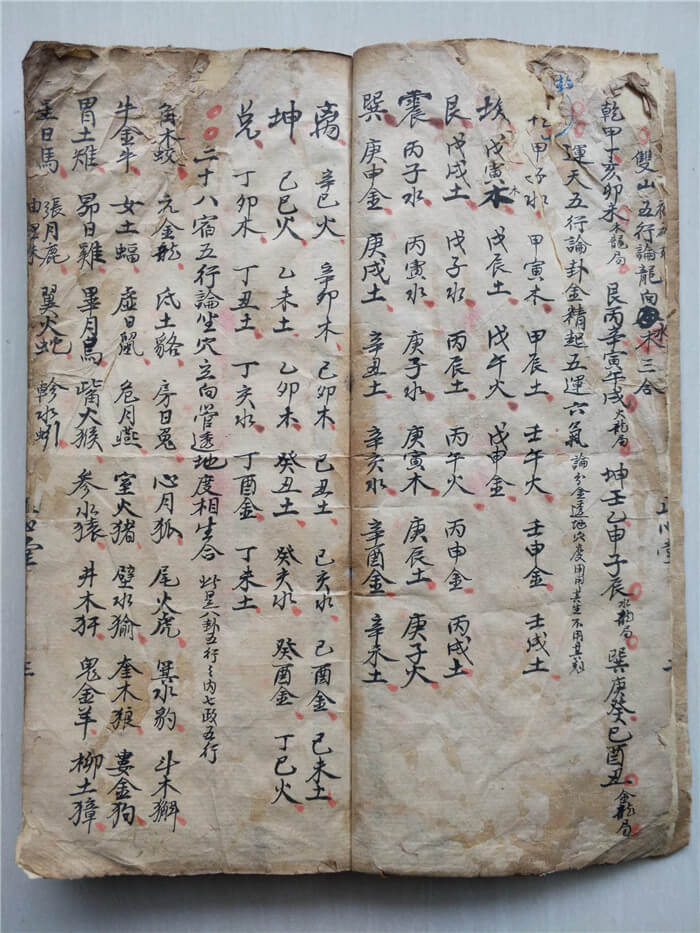 雙山五行論龍向水三合
乾甲丁亥卯未木龍局 艮丙辛寅午戌火龍局 坤壬乙申子辰水龍局 巽庚癸巳酉丑金龍局
運天五行論卦金精起五運六氣 論分金透地穴度用
甲子水 甲寅木 甲辰土 壬午火 壬申金 壬戌土
坎 戊寅木 戊辰土 戊午火 戊申金
艮 戊戌土 戊子水 丙辰土 丙午火 丙申金 丙戌土
震 丙子水 丙寅水 庚子水 庚寅木 庚辰土 庚子火
巽 庚申金 庚戌土 辛丑土 辛亥水 辛酉金 辛未土
离 辛巳火 辛卯木 己卯木 己丑土 己亥水 己酉金 己未土
坤 己巳火 乙未土 乙卯木 癸丑土 癸亥水 癸酉金 丁巳火
兑 丁卯木 丁丑土 丁亥水 丁酉金 丁未土
二十八宿五行論坐穴立向管透地度相生合 此是八卦五行之内七政五行
角木蛟 亢金龍 氐土貉 房日兔 心月狐 尾火虎 箕水豹 斗木獬
牛金牛 女土蝠 虛日鼠 危月燕 室火猪 壁水貐 奎木狼 婁金狗
胃土雉 昴日雞 畢月烏 觜火猴 参水猿 井木犴 鬼金羊 柳土獐
日馬 張月鹿 翼火蛇 軫水蚓